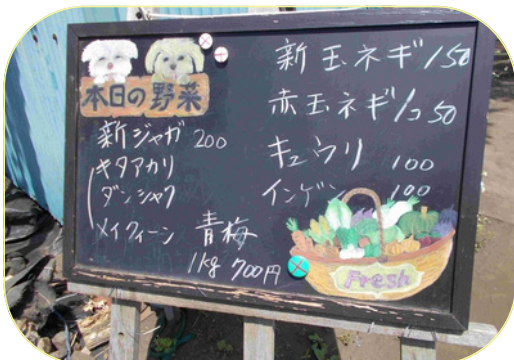 本日の野菜
新ジャガ 200
キタアカリ
ダンシャク
メイクィーン
青梅
1kg 700円
新玉ネギ 150
赤玉ネギ/コ50
キュウリ 100
インゲン 100
Fresh